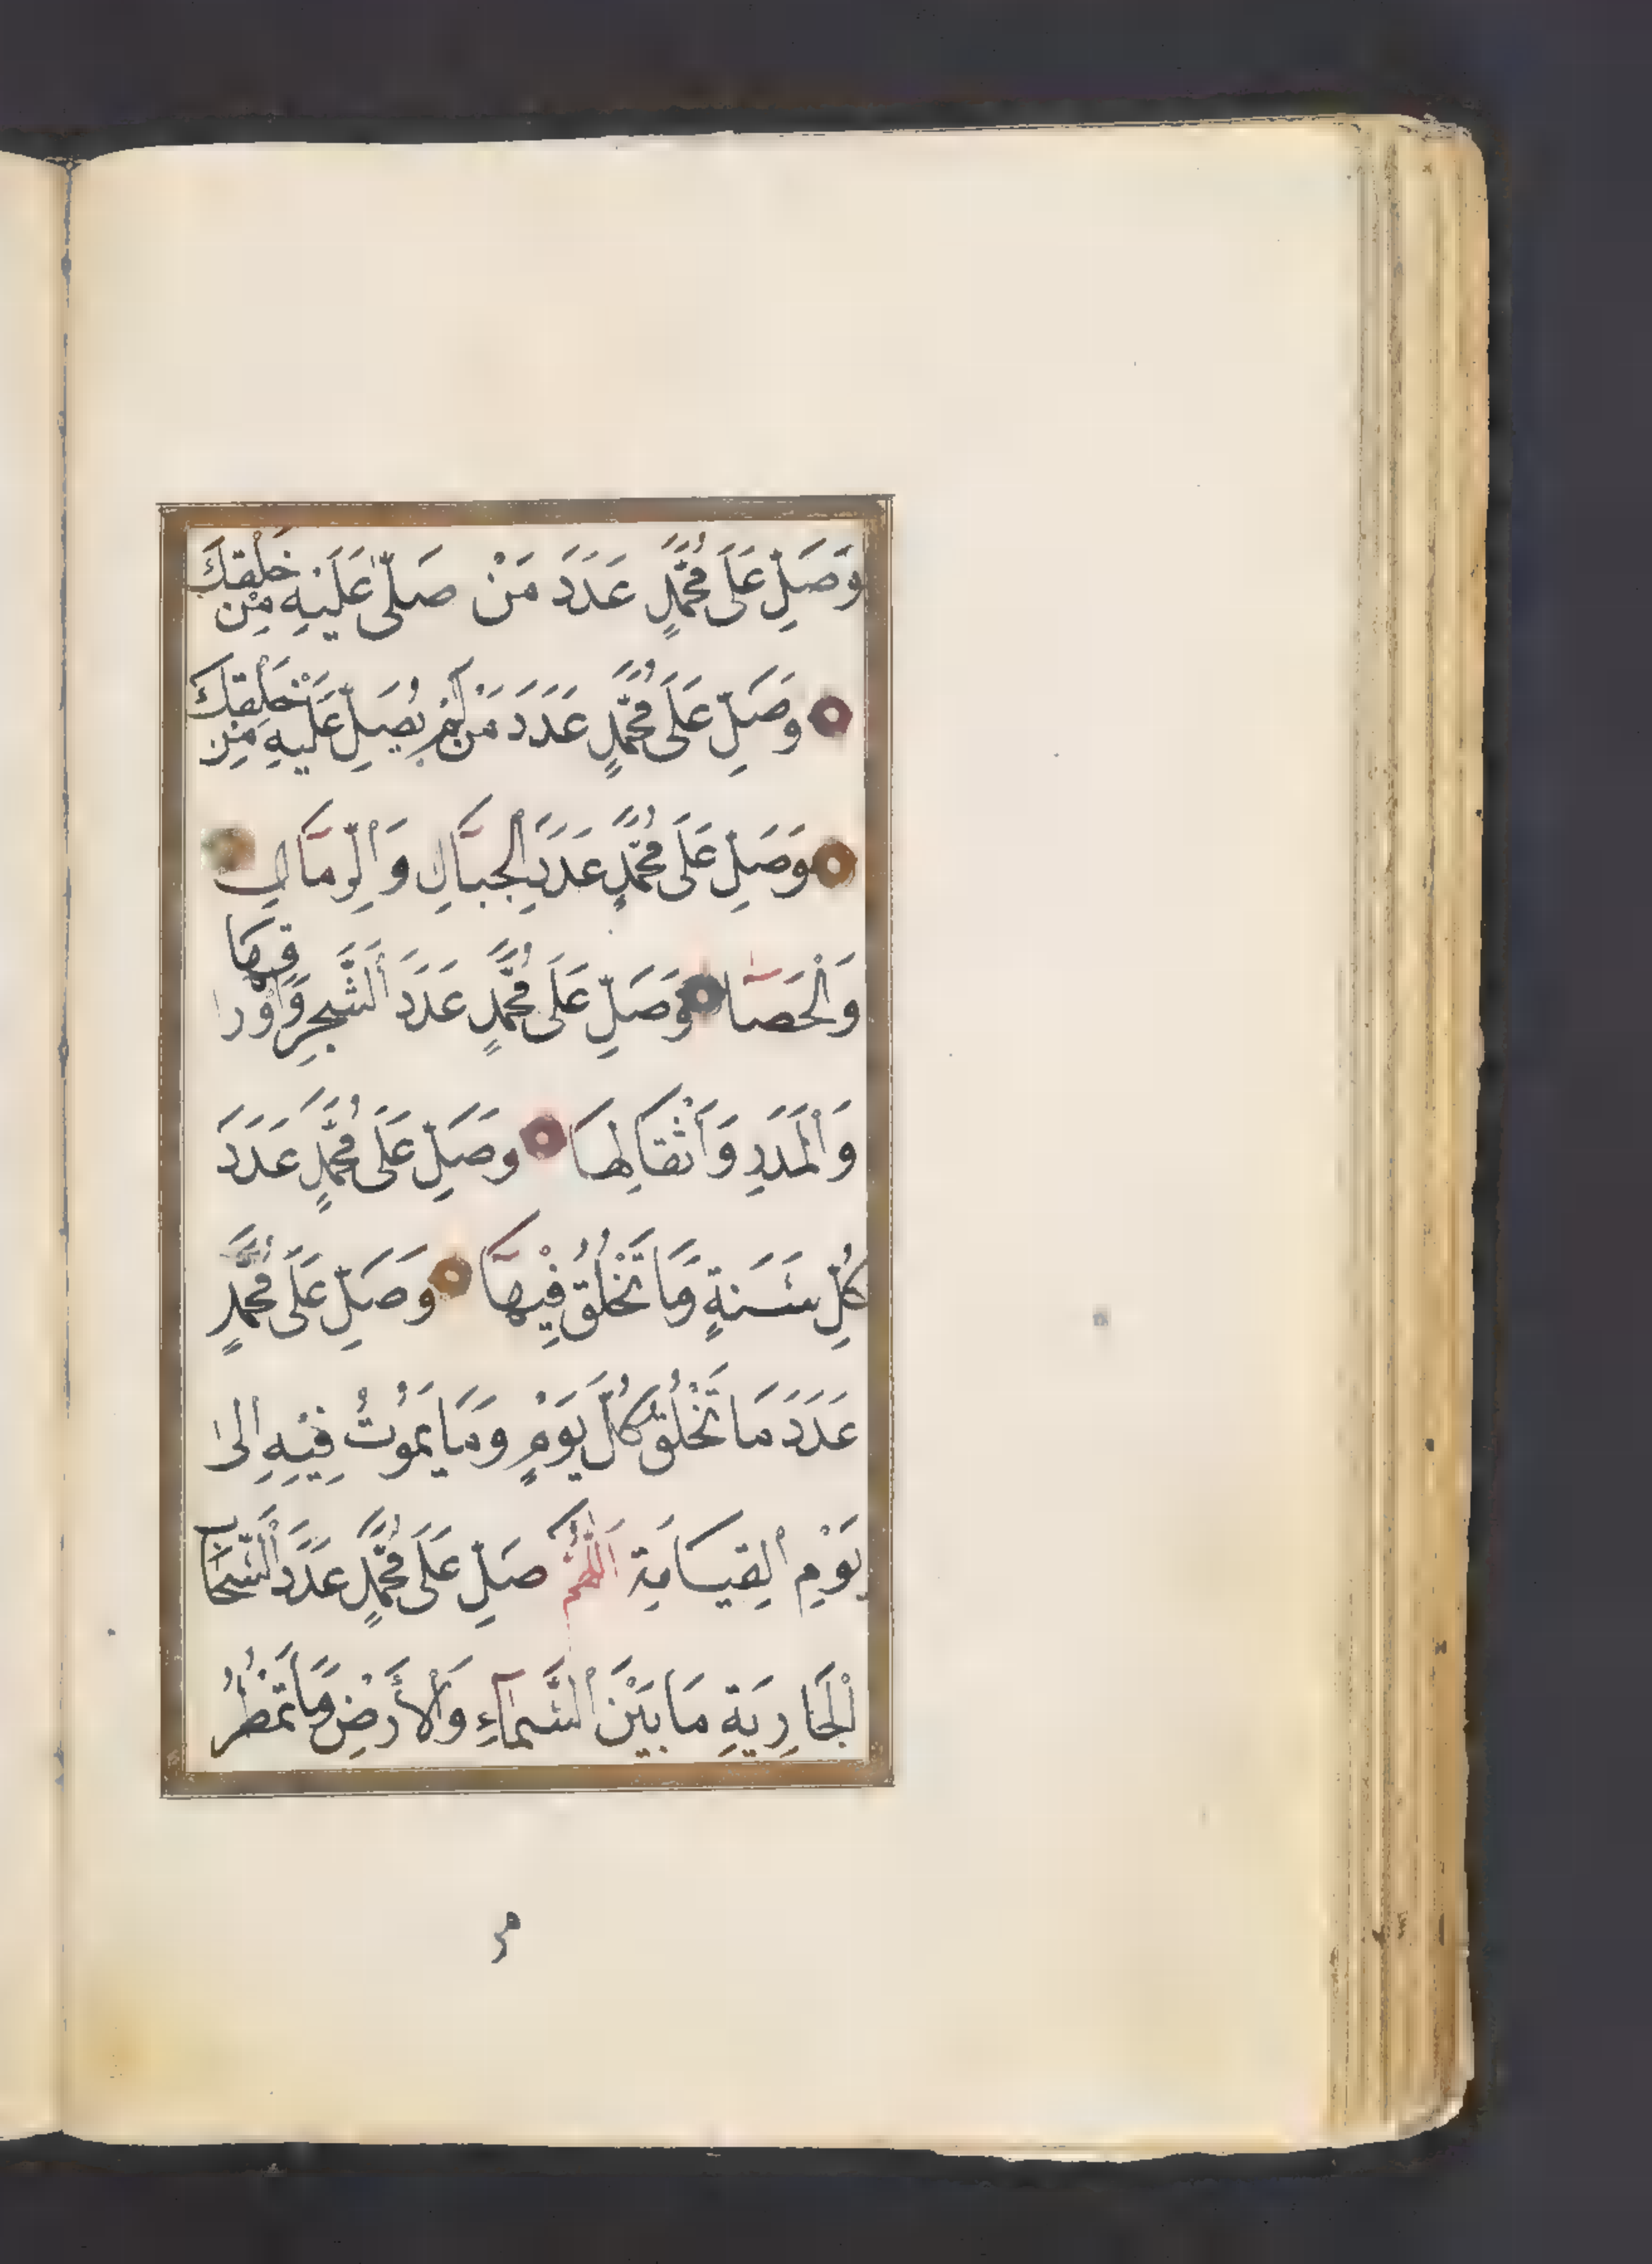 وَصَلِّ عَلَى مُحَمَّدٍ عَدَدَ مَنْ صَلّٰى عَلَيْهِ مِنْ خَلْقِكَ
وَصَلِّ عَلَى مُحَمَّدٍ عَدَدَ مَنْ لَمْ يُصَلِّ عَلَيْهِ مِنْ خَلْقِكَ
وَصَلِّ عَلَى مُحَمَّدٍ عَدَدَ الْجِبَالِ وَالرِّمَالِ
وَالْحَصَا وَصَلِّ عَلَى مُحَمَّدٍ عَدَدَ الشَّجَرِ وَأَوْرَاقِهَا
وَالْمَدَدِ وَأَثْقَالِهَا وَصَلِّ عَلَى مُحَمَّدٍ عَدَدَ
كُلِّ سَنَةٍ وَمَا تَخْلُقُ فِيْهَا وَصَلِّ عَلَى مُحَمَّدٍ
عَدَدَ مَا تَخْلُقُ كُلَّ يَوْمٍ وَمَا يَمُوْتُ فِيْهِ اِلىٰ
يَوْمِ الْقِيَامَةِ اَللّٰهُمَّ صَلِّ عَلَى مُحَمَّدٍ عَدَدَ السَّحَابِ
الْجَارِيَةِ مَا بَيْنَ السَّمَآءِ وَالْأَرْضِ وَمَا تَمْطُرُ